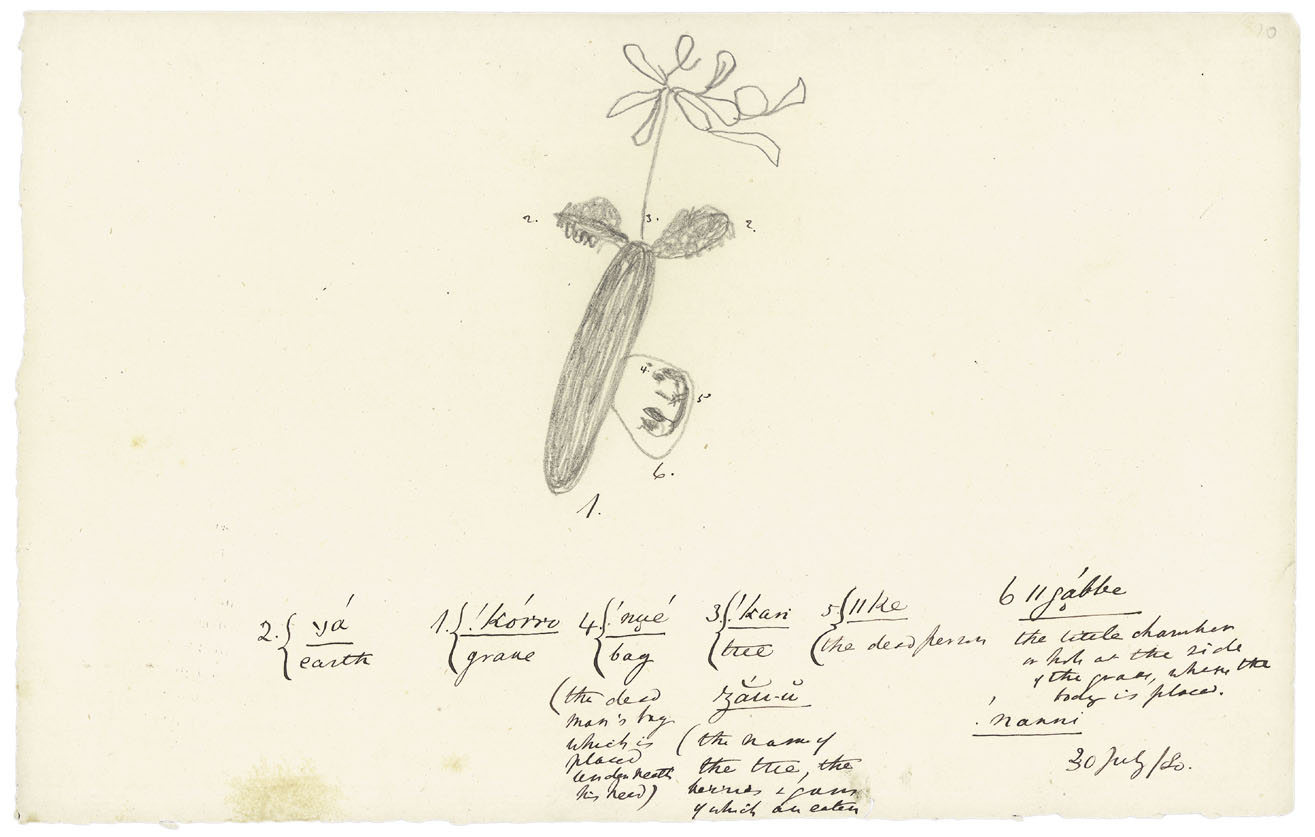 2.
3.
2.
4.
5.
6.
1.
2. { ɥá
earth
1. { !kórro
grave
4 { !nyé
bag
(the dead
man's bag
which is
placed
underneath
his head)
3 { !kari
tree
(the name of
the tree, the
berries & gum
of which are eaten
5 { ǁke
(the dead person
6 ǁgábbe
the little chamber
or hole at the side
of the grave, where the
body is placed.
!nanni
30 July /80.